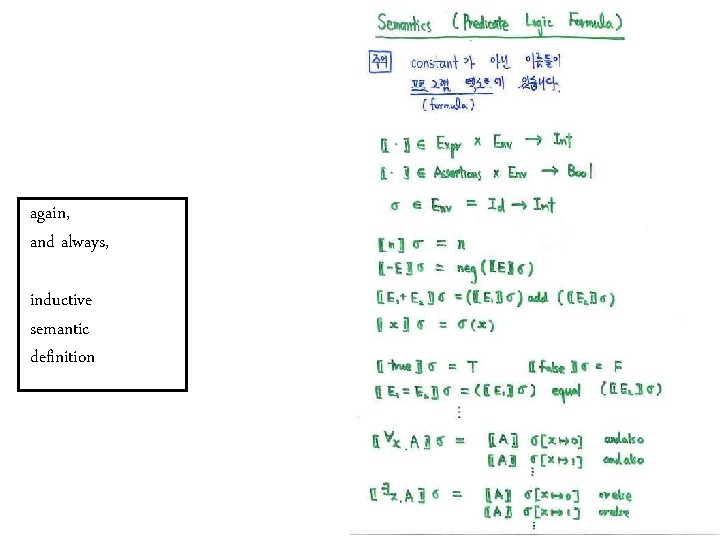 again,
and always,
inductive
semantic
definition
Semantics (Predicate Logic Formula)
주의 constant가 아닌 이름들이
프로그램 텍스트에 있습니다.
(formula)
⟦·⟧ ∈ Expr × Env → Int
⟦·⟧ ∈ Assertions × Env → Bool
σ ∈ Env = Id → Int
⟦n⟧σ = n
⟦-E⟧σ = neg(⟦E⟧σ)
⟦E₁+E₂⟧σ = (⟦E₁⟧σ) add (⟦E₂⟧σ)
⟦x⟧σ = σ(x)
⟦true⟧σ = T ⟦false⟧σ = F
⟦E₁=E₂⟧σ = (⟦E₁⟧σ) equal (⟦E₂⟧σ)
⋮
⟦∀x.A⟧σ = ⟦A⟧ σ[x↦0] andalso
⟦A⟧ σ[x↦1] andalso
⋮
⟦∃x.A⟧σ = ⟦A⟧ σ[x↦0] orelse
⟦A⟧ σ[x↦1] orelse
⋮